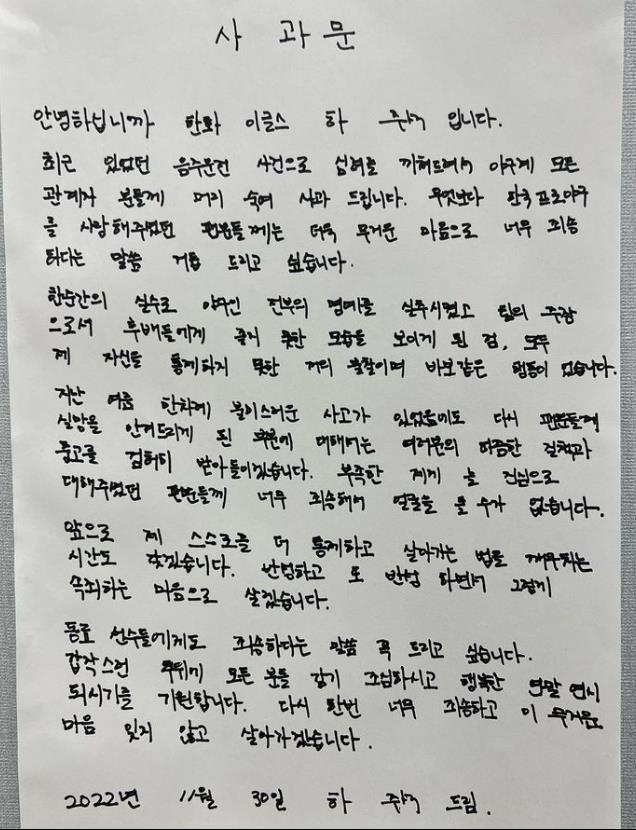 사 과 문
안녕하십니까 한화 이글스 하 주석 입니다.
최근 있었던 음주운전 사건으로 심려를 끼쳐드려서 야구계 모든
관계자 분들께 머리 숙여 사과 드립니다. 무엇보다 한국프로야구
를 사랑해주셨던 팬분들께는 더욱 무거운 마음으로 너무 죄송
하다는 말씀 거듭 드리고 싶습니다.
한순간의 실수로 야구인 전부의 명예를 실추시켰고 팀의 주장
으로서 후배들에게 굳지 못한 모습을 보이게 된 점, 모두
제 자신을 통제하지 못한 저의 불찰이며 바보같은 행동이 었습니다.
지난 여름 한차례 불미스러운 사고가 있었음에도 다시 팬분들께
실망을 안겨드리게 된 부분에 대해서는 여러분의 따끔한 질책과
충고를 겸허히 받아들이겠습니다. 부족한 제게 늘 진심으로
대해주셨던 팬분들께 너무 죄송해서 얼굴을 들 수가 없습니다.
앞으로 제 스스로를 더 통제하고 살아가는 법을 깨우치는
시간도 갖겠습니다. 반성하고 또 반성 하면서 그렇게
속죄하는 마음으로 살겠습니다.
동료 선수들에게도 죄송하다는 말씀 꼭 드리고 싶습니다.
갑작스런 추위에 모든 분들 감기 조심하시고 행복한 연말 연시
되시기를 기원합니다. 다시 한번 너무 죄송하고 이 무거운
마음 잊지 않고 살아가겠습니다.
2022년 11월 30일 하 주석 드림.